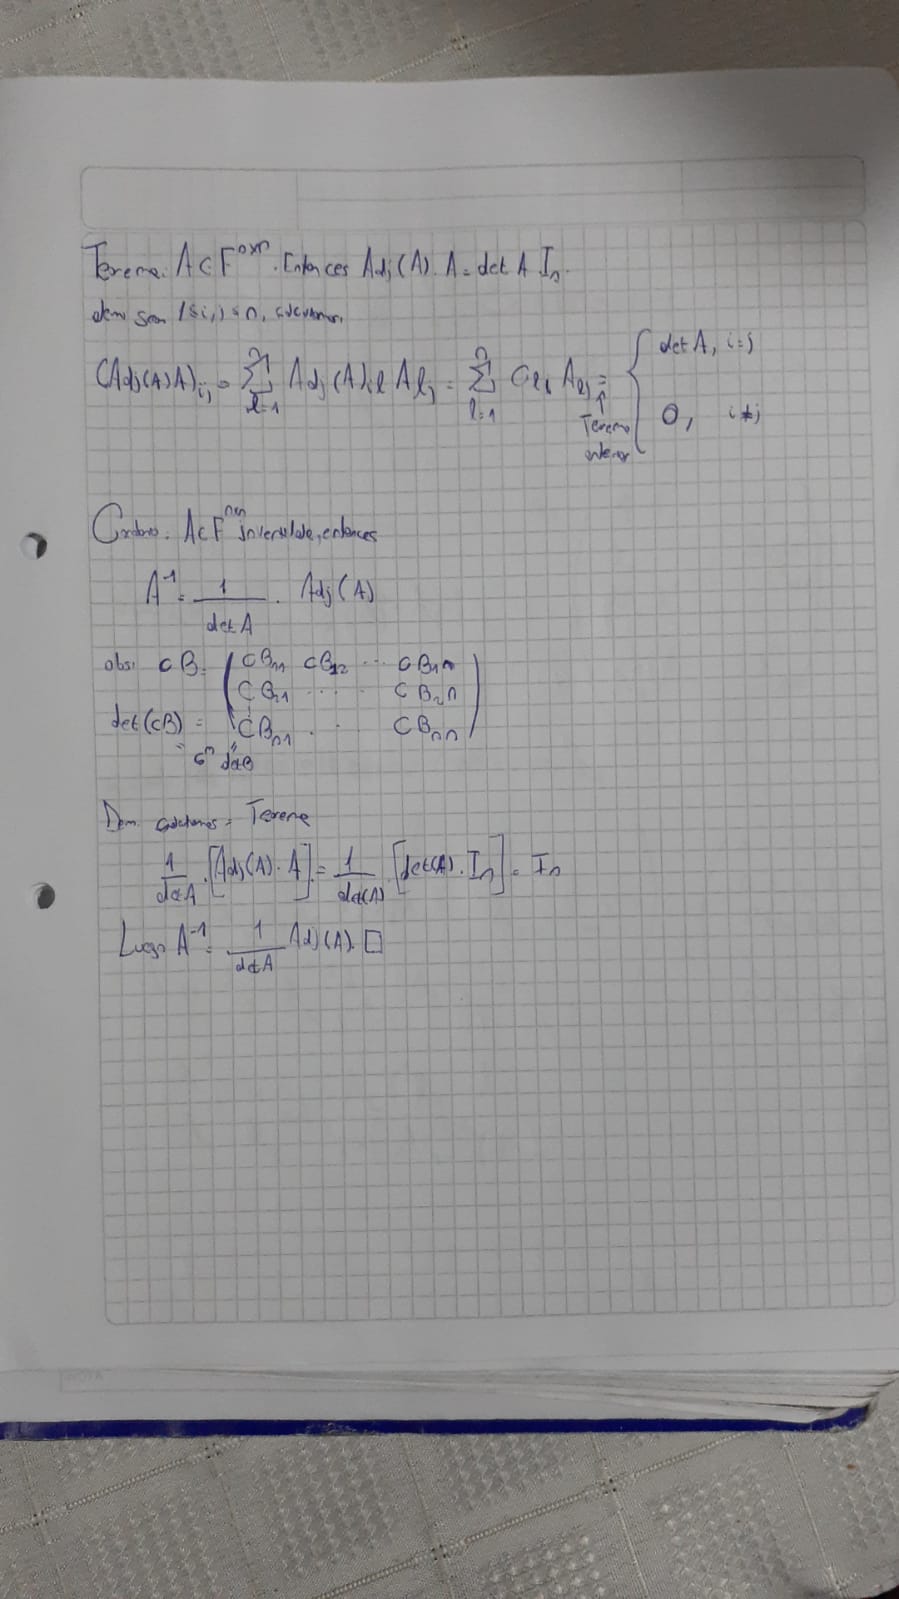 Teorema. A∈F^{n×n}. Entonces Adj(A).A = det A I_n.
dem sean 1≤i,j≤n, calculamos,
(Adj(A)A)_{ij} = \sum_{l=1}^{n} Adj(A)_{il} A_{lj} = \sum_{l=1}^{n} C_{li} A_{lj} = { det A, i=j
0, i≠j
↑
Teorema
anterior
Corolario. A∈F^{n×n} invertible, entonces
A^{-1} = \frac{1}{det A} . Adj(A)
obs: cB = ( cB_{11} cB_{12} ... cB_{1n}
cB_{21} ... cB_{2n}
det(cB) = cB_{n1} ... cB_{nn} )
= c^n det B
Dem. calculamos = Teorema
\frac{1}{det A} . [Adj(A) . A] = \frac{1}{det(A)} [det(A) . I_n] = I_n
Luego A^{-1} = \frac{1}{det A} Adj(A). □